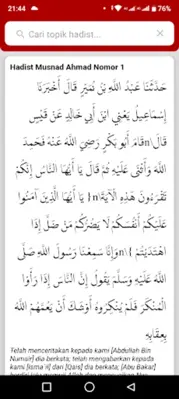 21:44
76%
Cari topik hadist...
Hadist Musnad Ahmad Nomor 1
حَدَّثَنَا عَبْدُ اللَّهِ بْنُ نُمَيْرٍ قَالَ أَخْبَرَنَا
إِسْمَاعِيلُ يَعْنِي ابْنَ أَبِي خَالِدٍ عَنْ قَيْسٍ
قَالَ\nقَامَ أَبُو بَكْرٍ رَضِيَ اللَّهُ عَنْهُ فَحَمِدَ
اللَّهَ وَأَثْنَى عَلَيْهِ ثُمَّ قَالَ يَا أَيُّهَا النَّاسُ إِنَّكُمْ
تَقْرَءُونَ هَذِهِ الْآيَةَ\n{ يَا أَيُّهَا الَّذِينَ آمَنُوا
عَلَيْكُمْ أَنْفُسَكُمْ لَا يَضُرُّكُمْ مَنْ ضَلَّ إِذَا
اهْتَدَيْتُمْ }\nوَإِنَّا سَمِعْنَا رَسُولَ اللَّهِ صَلَّى
اللَّهُ عَلَيْهِ وَسَلَّمَ يَقُولُ إِنَّ النَّاسَ إِذَا رَأَوْا
الْمُنْكَرَ فَلَمْ يُنْكِرُوهُ أَوْشَكَ أَنْ يَعُمَّهُمْ اللَّهُ
بِعِقَابِهِ
Telah menceritakan kepada kami [Abdullah Bin
Numair] dia berkata; telah mengabarkan kepada
kami [Isma'il] dari [Qais] dia berkata; [Abu Bakar]